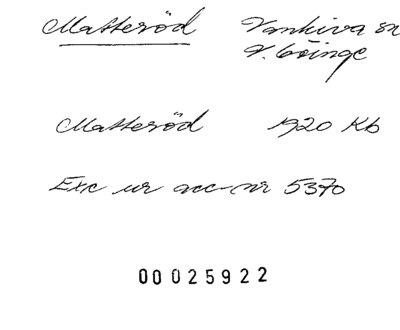 Matteröd Vankiva sn
V. Göinge
Matteröd 1920 Kb
Exc ur acc-nr 5370
00025922